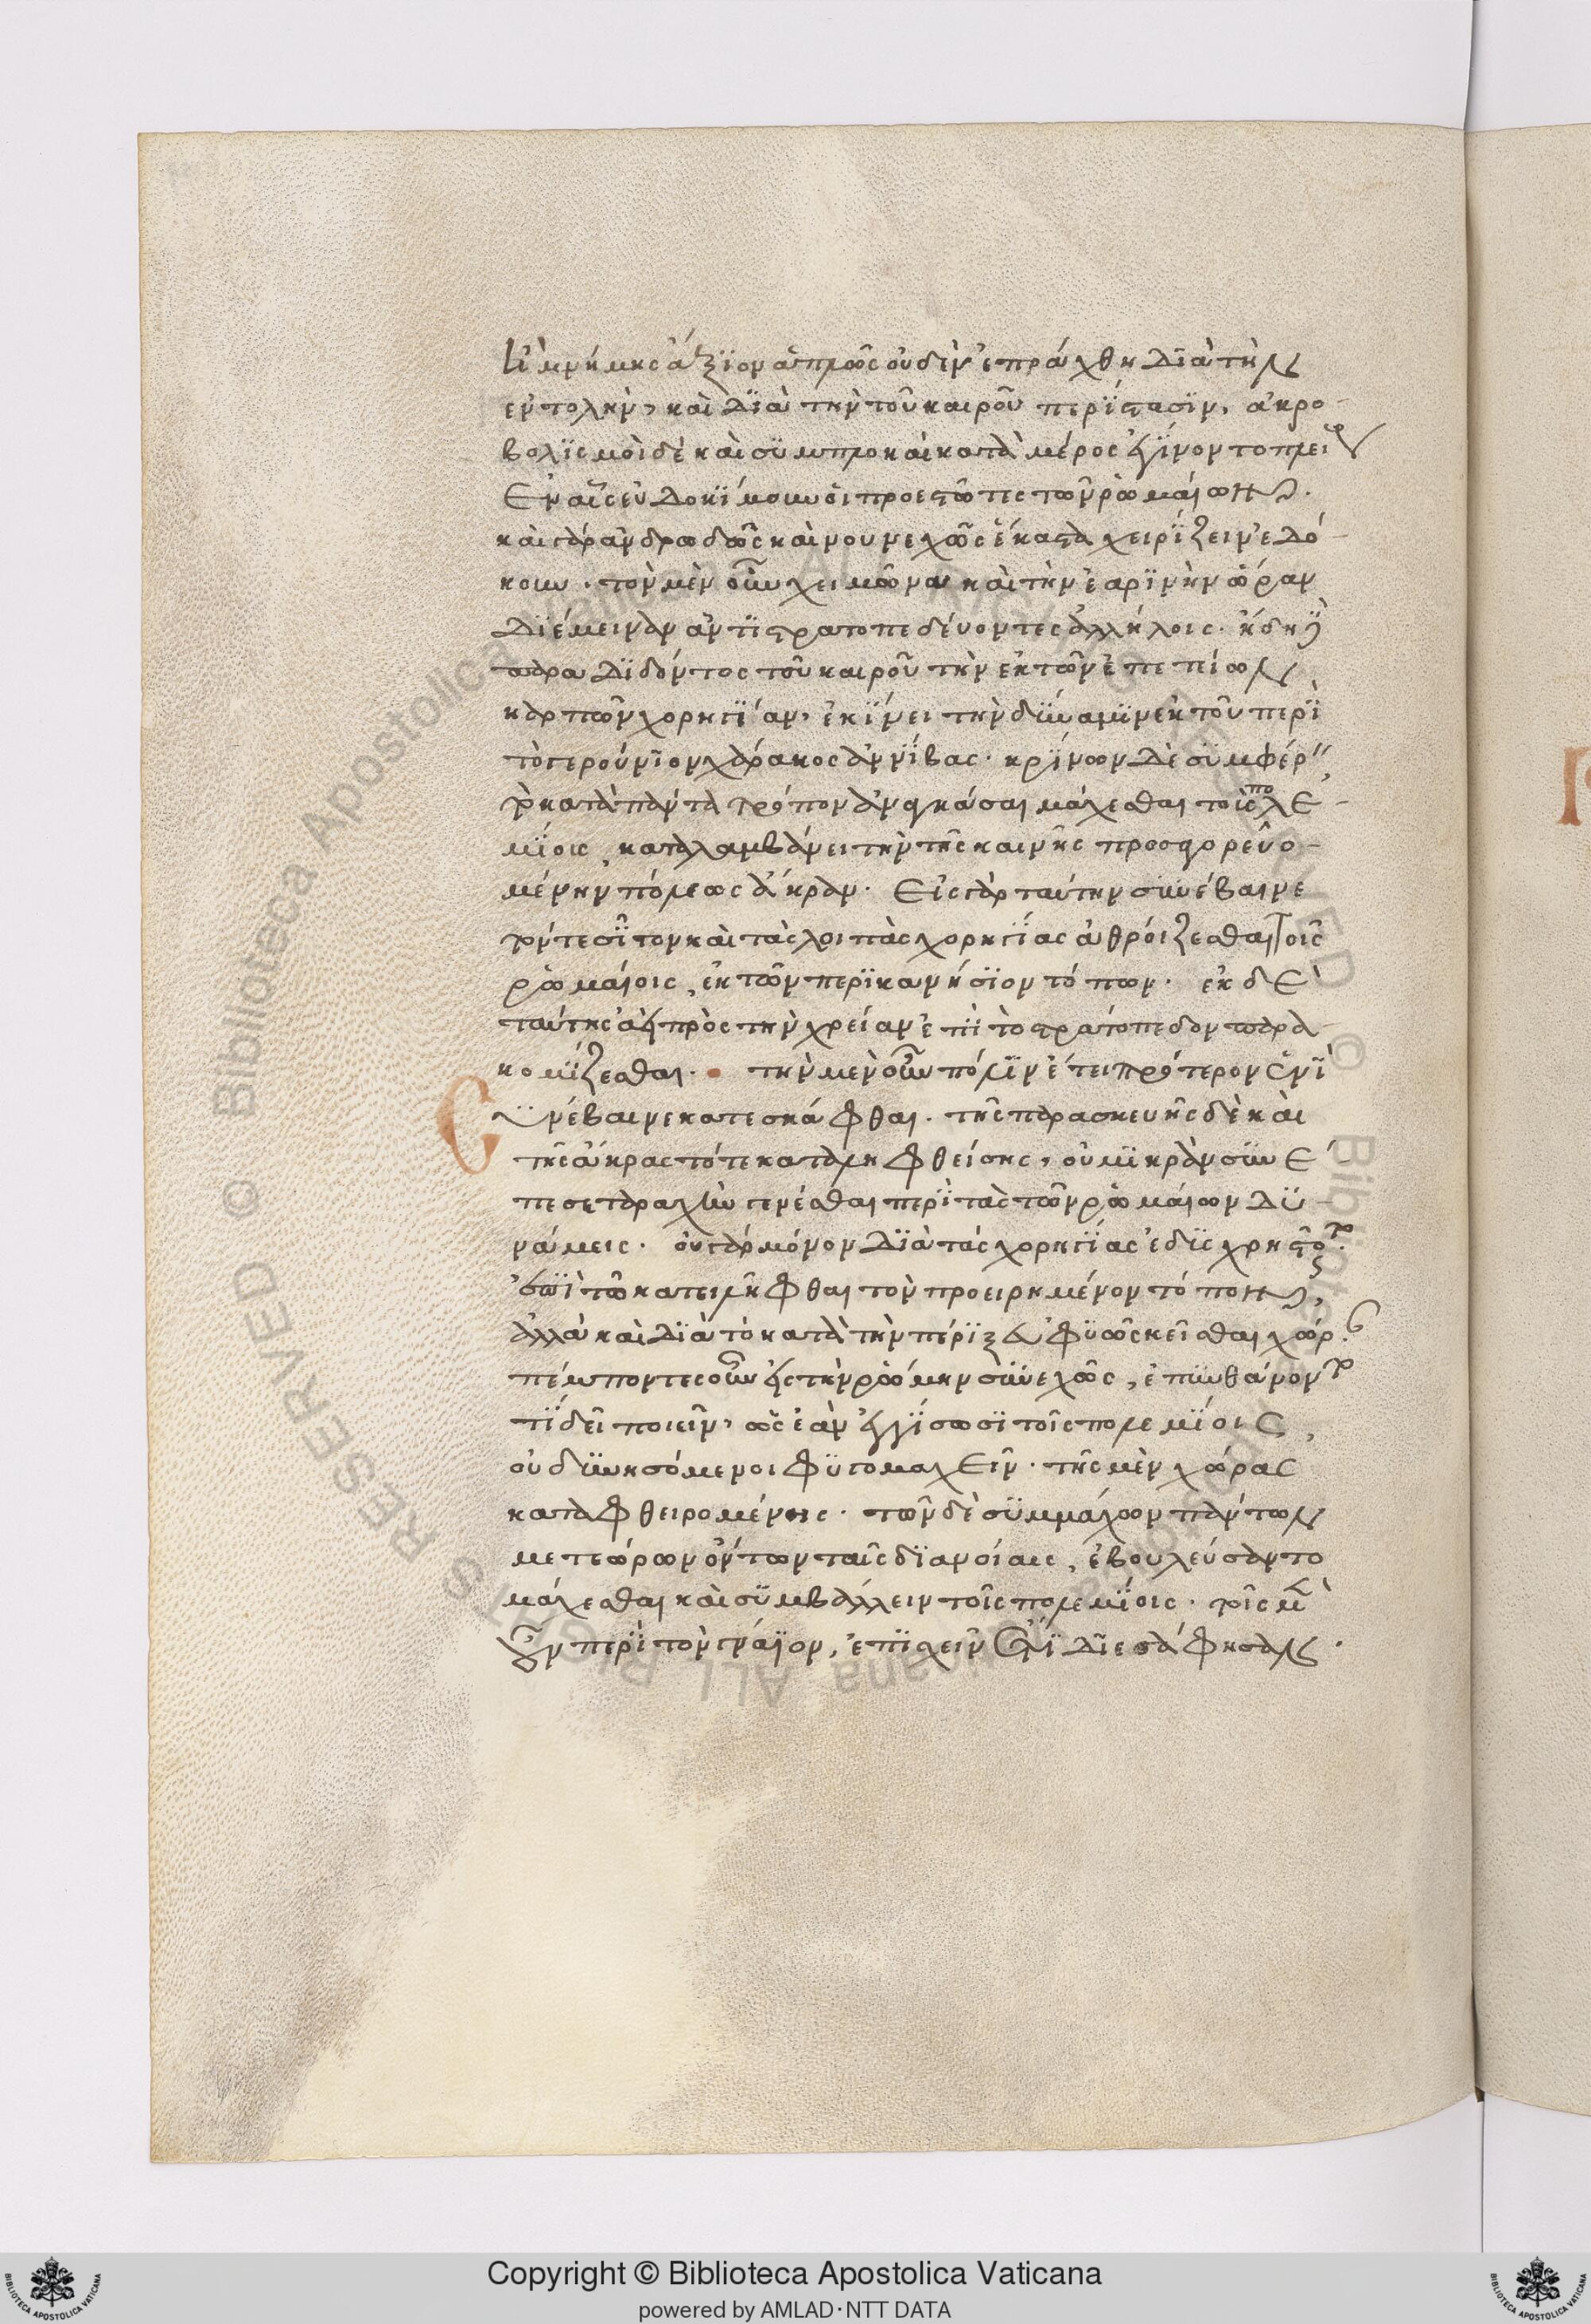 ἢ μνήμης ἄξϊον ἁπλῶς οὐδὲν ἐπράχθη διὰ τὴν
ἐντολὴν, καὶ διὰ τὴν τοῦ καιροῦ περίστασϊν, ἀκρο-
βολϊσμοὶ δὲ καὶ συμπλοκαὶ κατὰ μέρος ἐγίνοντο πλείους
Ἐν αἷς εὐδοκίμουν οἱ προεστῶτες τῶν ῥωμαίων.
καὶ γὰρ ἀνδρωδῶς καὶ νουνεχῶς ἕκαστα χειρίζειν ἐδό-
κουν. τὸν μὲν οὖν χειμῶνα καὶ τὴν ἐαρϊνὴν ὥραν
Διέμειναν ἀντϊστρατοπεδεύοντες ἀλλήλοις. ἤδη δὲ
παραδϊδόντος τοῦ καιροῦ τὴν ἐκ τῶν ἐπετίων
καρπῶν χορηγίαν, ἐκίνει τὴν δύναμϊν ἐκ τοῦ περὶ
τὸ γερούνϊον χάρακος ἀννίβας. κρίνων δὲ συμφέρειν
τὸ κατὰ πάντα τρόπον ἀναγκάσαι μάχεσθαι τοῖς πολε-
μίοις, καταλαμβάνει τὴν τῆς καινῆς προσαγορευο-
μένην πόλεως ἄκραν. Εἰς γὰρ ταύτην συνέβαινε
τόν τε σῖτον καὶ τὰς λοιπὰς χορηγίας ἀθροίζεσθαι τοῖς
ῥωμαίοις, ἐκ τῶν περὶ κανήσϊον τόπων. ἐκ δὲ
ταύτης ἀεὶ πρὸς τὴν χρείαν ἐπὶ τὸ στρατόπεδον παρα-
κομίζεσθαι. τὴν μὲν οὖν πόλϊν ἔτει πρότερον ἑνὶ
Συνέβαινε κατεσκάφθαι. τῆς παρασκευῆς δὲ καὶ
τῆς ἄκρας τότε καταληφθείσης, οὐ μϊκρὰν συνέ
πεσε ταραχὴν γενέσθαι περὶ τὰς τῶν ῥωμαίων δυ-
νάμεις. οὐ γὰρ μόνον διὰ τὰς χορηγίας ἐδϊσχρηστοῦντο
ἐπὶ τῶ κατειλῆφθαι τὸν προειρημένον τόπον,
ἀλλὰ καὶ διὰ τὸ κατὰ τὴν πέριξ εὐφυῶς κεῖσθαι χώραν.
πέμποντες οὖν εἰς τὴν ῥώμην συνεχῶς, ἐπυνθάνοντο
τί δεῖ ποιεῖν, ὡς ἐὰν ἐγγίσωσϊ τοῖς πολεμίοις,
οὐ δυνησόμενοι φυγομαχεῖν. τῆς μὲν χώρας
καταφθειρομένης. τῶν δὲ συμμάχων πάντων
μετεώρων ὄντων ταῖς διανοίαις, ἐβουλεύσαντο
μάχεσθαι καὶ συμβάλλειν τοῖς πολεμίοις. τοῖς μὲν
οὖν περὶ τὸν γνάϊον, ἐπϊσχεῖν ἔτϊ διεσάφησαν.
Copyright © Biblioteca Apostolica Vaticana
powered by AMLAD·NTT DATA